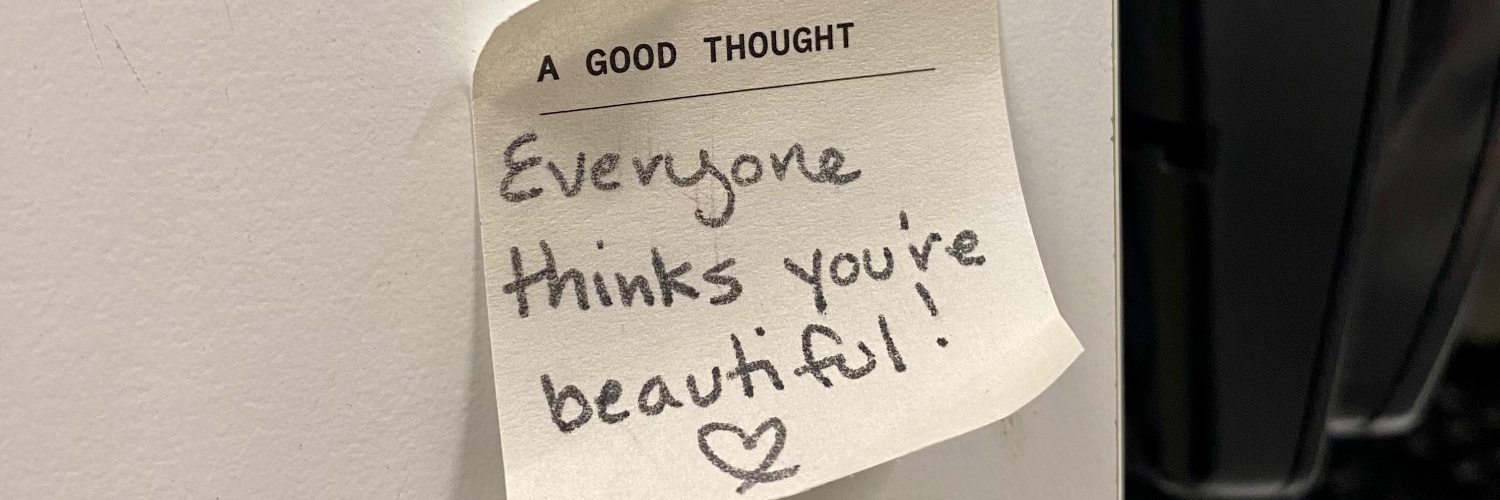 A GOOD THOUGHT
Everyone
thinks you're
beautiful!